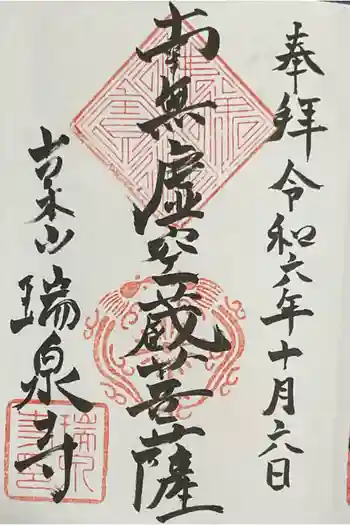 奉拝 令和六年十月六日
南無虚空蔵菩薩
吉禾山 瑞泉寺